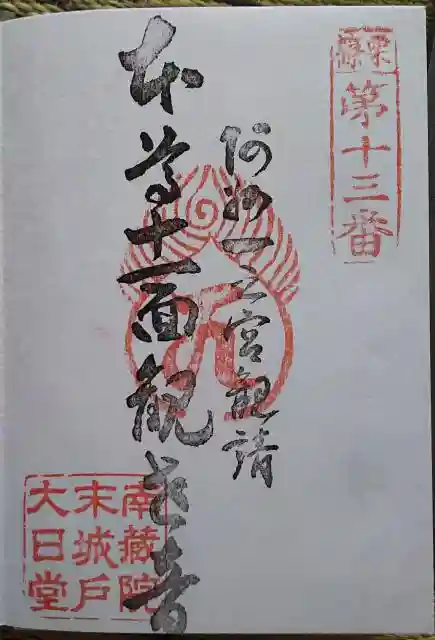 栗霊
第十三番
阿州一之宮観請
本尊十一面観世音
南蔵院
末城戸
大日堂